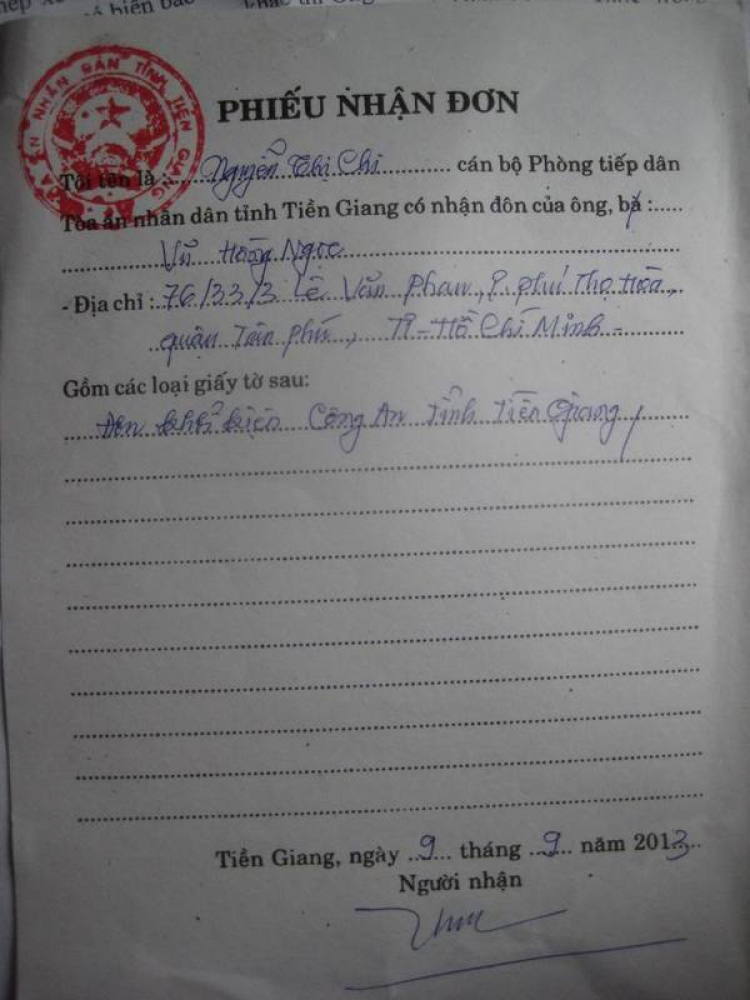 PHIẾU NHẬN ĐƠN
TÒA ÁN NHÂN DÂN TỈNH TIỀN GIANG
Tôi tên là :.. Nguyễn Thị Chi ........... cán bộ Phòng tiếp dân
Tòa án nhân dân tỉnh Tiền Giang có nhận đôn của ông, bà :.....
Vũ Hoàng Ngọc
- Địa chỉ : 76/33/3 Lê Văn Phan, P. phú Thọ Hòa,
quận Tân phú, TP - Hồ Chí Minh -
Gồm các loại giấy tờ sau:
Đơn khởi kiện Công An Tỉnh Tiền Giang
Tiền Giang, ngày ..9... tháng ..9.. năm 2013...
Người nhận